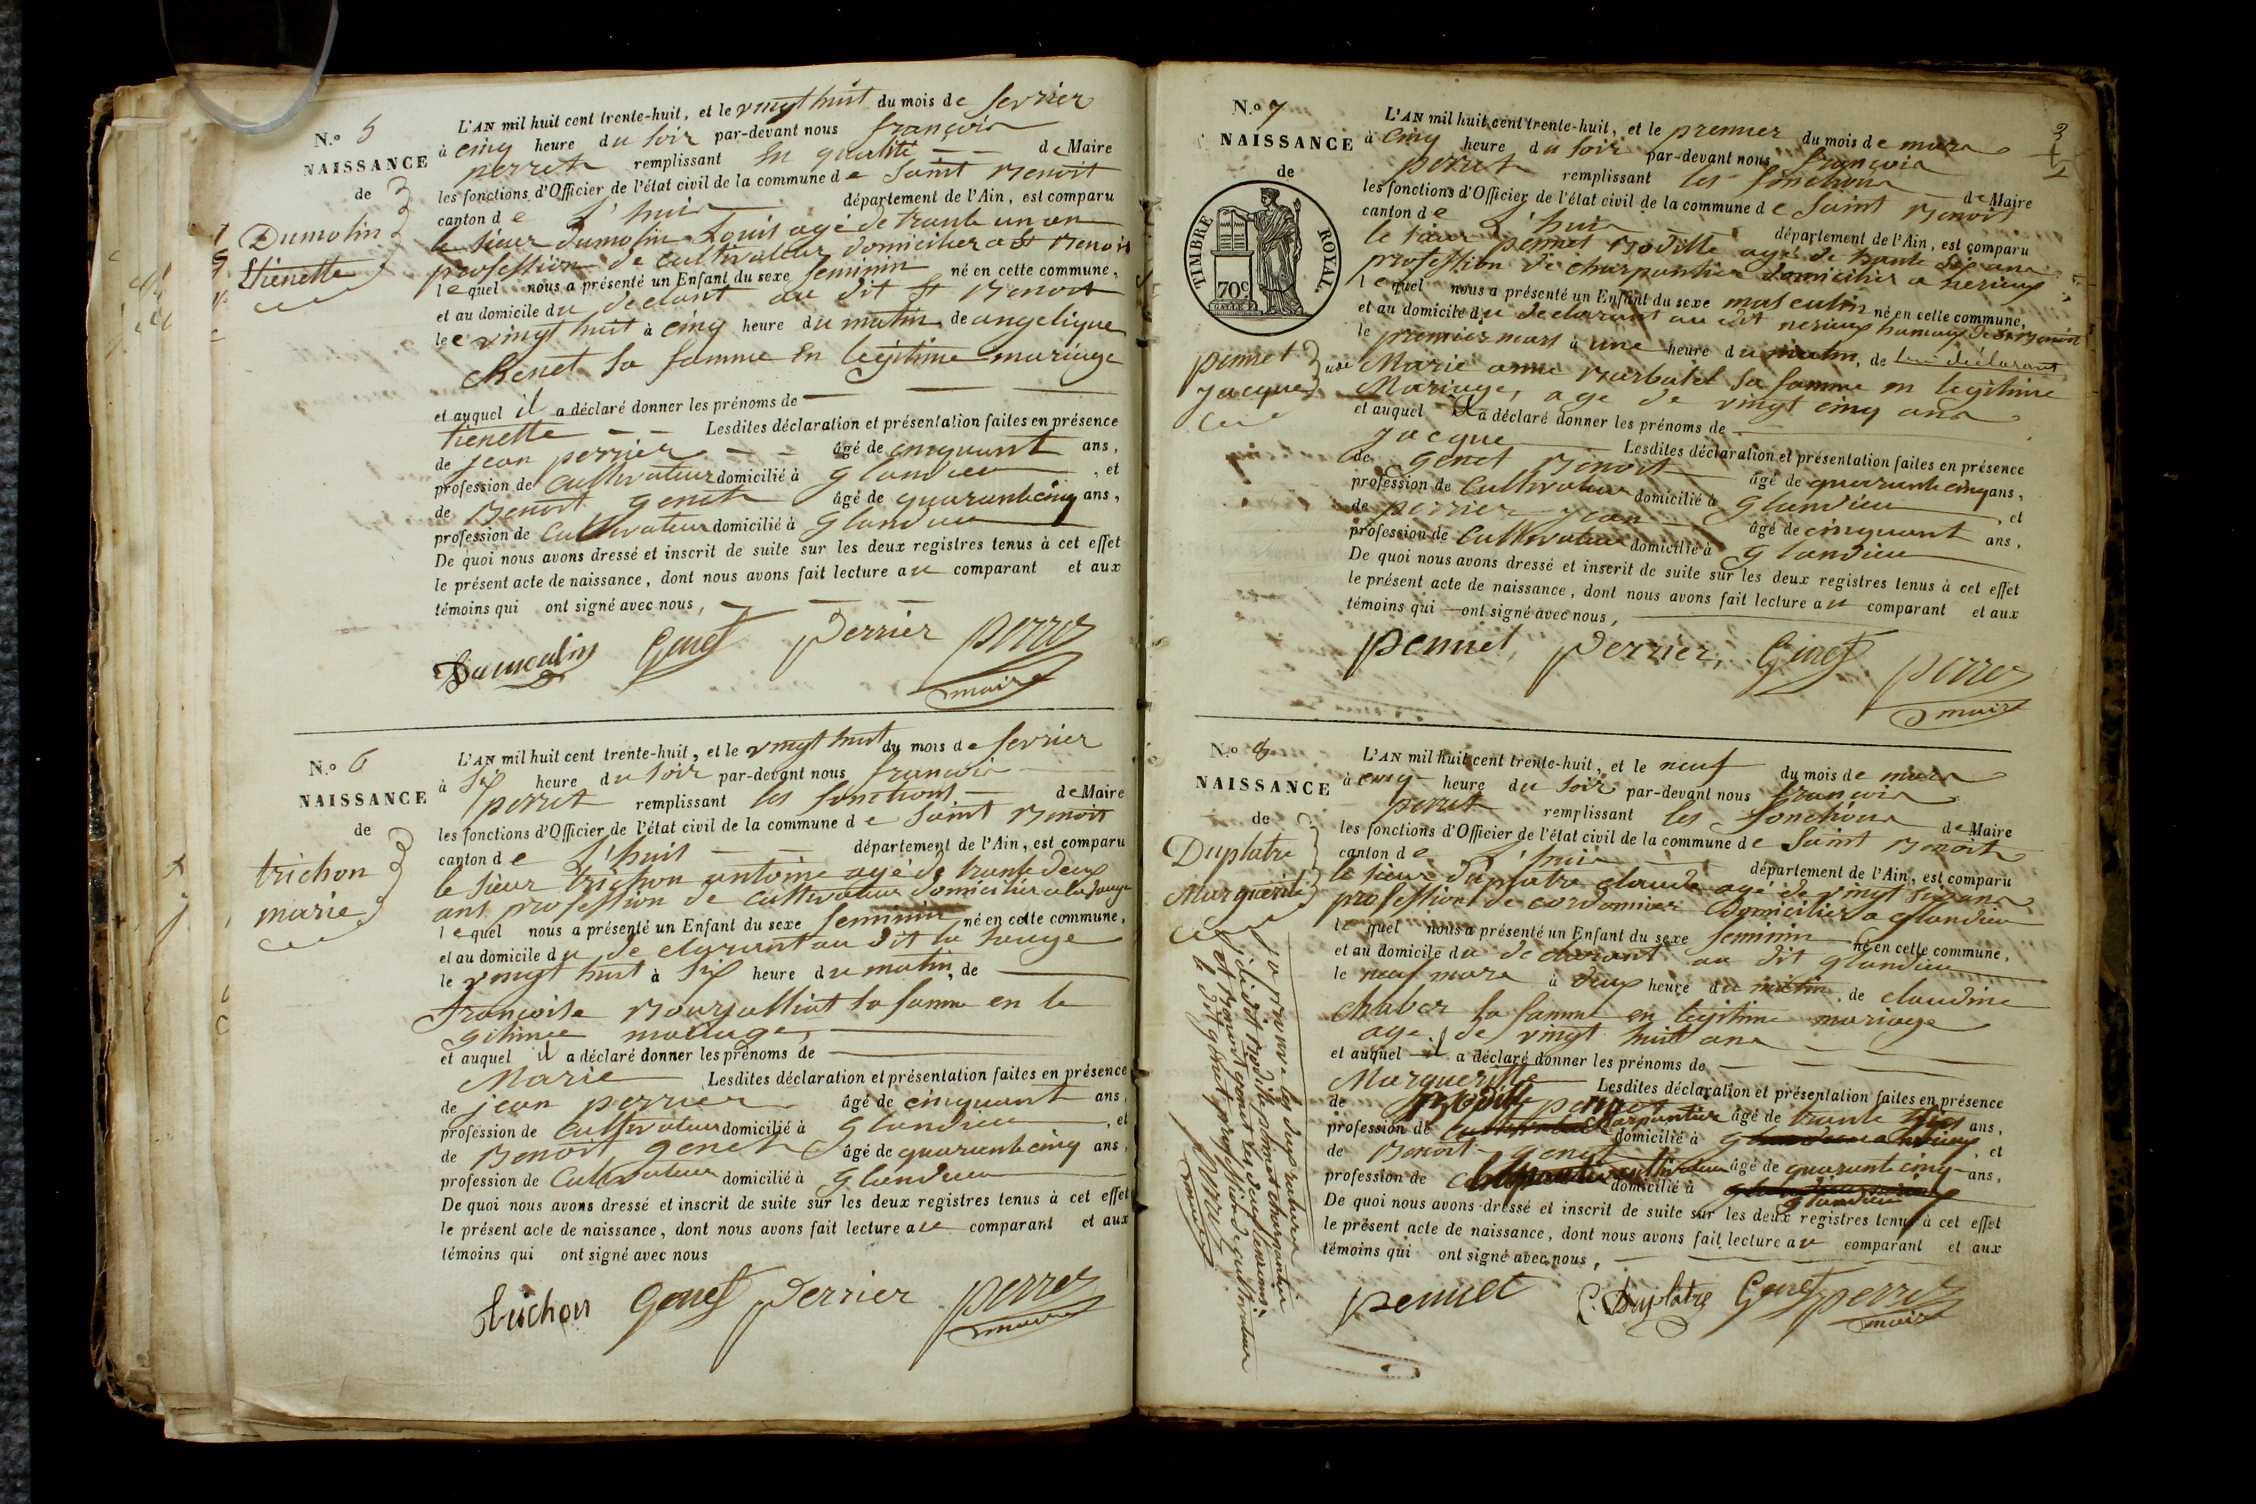 N.o 5
NAISSANCE
de
Dumolin
Etienette
L'AN mil huit cent trente-huit, et le vingt huit du mois de fevrier
à cinq heure du soir par-devant nous françois
perret remplissant en qualité de Maire
les fonctions d'Officier de l'état civil de la commune de Saint Benoit
canton de L'huis département de l'Ain, est comparu
le sieur Dumolin Louis agé de trante un an
profession de cultivateur domicilier a St Benoit
lequel nous a présenté un Enfant du sexe feminin né en cette commune,
et au domicile du declarant au dit St Benoit
le vingt huit à cinq heure du matin, de angelique
chenet sa famme en legitime mariage
et auquel il a déclaré donner les prénoms de
tienette Lesdites déclaration et présentation faites en présence
de jean perrier âgé de cinquant ans,
profession de cultivateur domicilié à glandieu, et
de Benoit genet âgé de quarante cinq ans,
profession de cultivateur domicilié à glandieu
De quoi nous avons dressé et inscrit de suite sur les deux registres tenus à cet effet
le présent acte de naissance, dont nous avons fait lecture au comparant et aux
témoins qui ont signé avec nous,
Dumoulin Genet Perrier perret
maire
N.o 6
NAISSANCE
de
trichon
marie
L'AN mil huit cent trente-huit, et le vingt huit du mois de fevrier
à six heure du soir par-devant nous françois
perret remplissant les fonctions de Maire
les fonctions d'Officier de l'état civil de la commune de Saint Benoit
canton de L'huis département de l'Ain, est comparu
le sieur trichon antoine agé de trante deux
ans profession de cultivateur domicilier a la sauge
lequel nous a présenté un Enfant du sexe feminin né en cette commune,
et au domicile du declarant au dit la sauge
le vingt huit à six heure du matin, de
françoise Bourjalliat sa famme en le
gitimee mariage,
et auquel il a déclaré donner les prénoms de
Marie Lesdites déclaration et présentation faites en présence
de jean perrier âgé de cinquant ans,
profession de cultivateur domicilié à glandieu, et
de Benoit genet âgé de quarante cinq ans,
profession de cultivateur domicilié à glandieu
De quoi nous avons dressé et inscrit de suite sur les deux registres tenus à cet effet
le présent acte de naissance, dont nous avons fait lecture au comparant et aux
témoins qui ont signé avec nous
trichon Genet Perrier perret
maire
N.o 7
NAISSANCE
de
TIMBRE ROYAL.
70c
pennet
jacque
L'AN mil huit cent trente-huit, et le premier du mois de mars
à cinq heure du soir par-devant nous françois
perret remplissant les fonctions de Maire
les fonctions d'Officier de l'état civil de la commune de Saint Benoit
canton de L'huis département de l'Ain, est comparu
le sieur pennet Bodille agé de trante six ans
profession de charpantier domicilier a nerieux
lequel nous a présenté un Enfant du sexe masculin né en cette commune,
et au domicile du declarant au dit nerieux hamaux de St Benoit
le premier mars à une heure du matin, de lui déclarant
Marie anne Barbatel sa famme en legitime
Mariage, age de vingt cinq ans
et auquel il a déclaré donner les prénoms de
jacque Lesdites déclaration et présentation faites en présence
de genet Benoit âgé de quarante cinq ans,
profession de cultivateur domicilié à glandieu, et
de perrier jean âgé de cinquant ans,
profession de cultivateur domicilié à glandieu
De quoi nous avons dressé et inscrit de suite sur les deux registres tenus à cet effet
le présent acte de naissance, dont nous avons fait lecture au comparant et aux
témoins qui ont signé avec nous,
pennet, Perrier, Genet perret
maire
N.o 8
NAISSANCE
de
Duplatre
Marguerite
L'AN mil huit cent trente-huit, et le neuf du mois de mars
à cinq heure du soir par-devant nous françois
perret remplissant les fonctions de Maire
les fonctions d'Officier de l'état civil de la commune de Saint Benoit
canton de L'huis département de l'Ain, est comparu
le sieur duplatre claude agé de vingt six ans
profession de cordonnier domicilier a glandieu
lequel nous a présenté un Enfant du sexe feminin né en cette commune,
et au domicile du declarant au dit glandieu
le neuf mars à deux heure du matin, de claudine
chaber sa famme en legitime mariage
age de vingt huit ans
et auquel il a déclaré donner les prénoms de
Marguerite Lesdites déclaration et présentation faites en présence
de Bodille pennet âgé de trante six ans,
profession de charpantier domicilié à nerieux, et
de Benoit genet âgé de quarante cinq ans,
profession de cultivateur domicilié à glandieu
De quoi nous avons dressé et inscrit de suite sur les deux registres tenus à cet effet
le présent acte de naissance, dont nous avons fait lecture au comparant et aux
témoins qui ont signé avec nous,
pennet C. Duplatre Genet perret
maire
japrouve les deux ratures
le dit genet profession de cultivateur
perret
maire